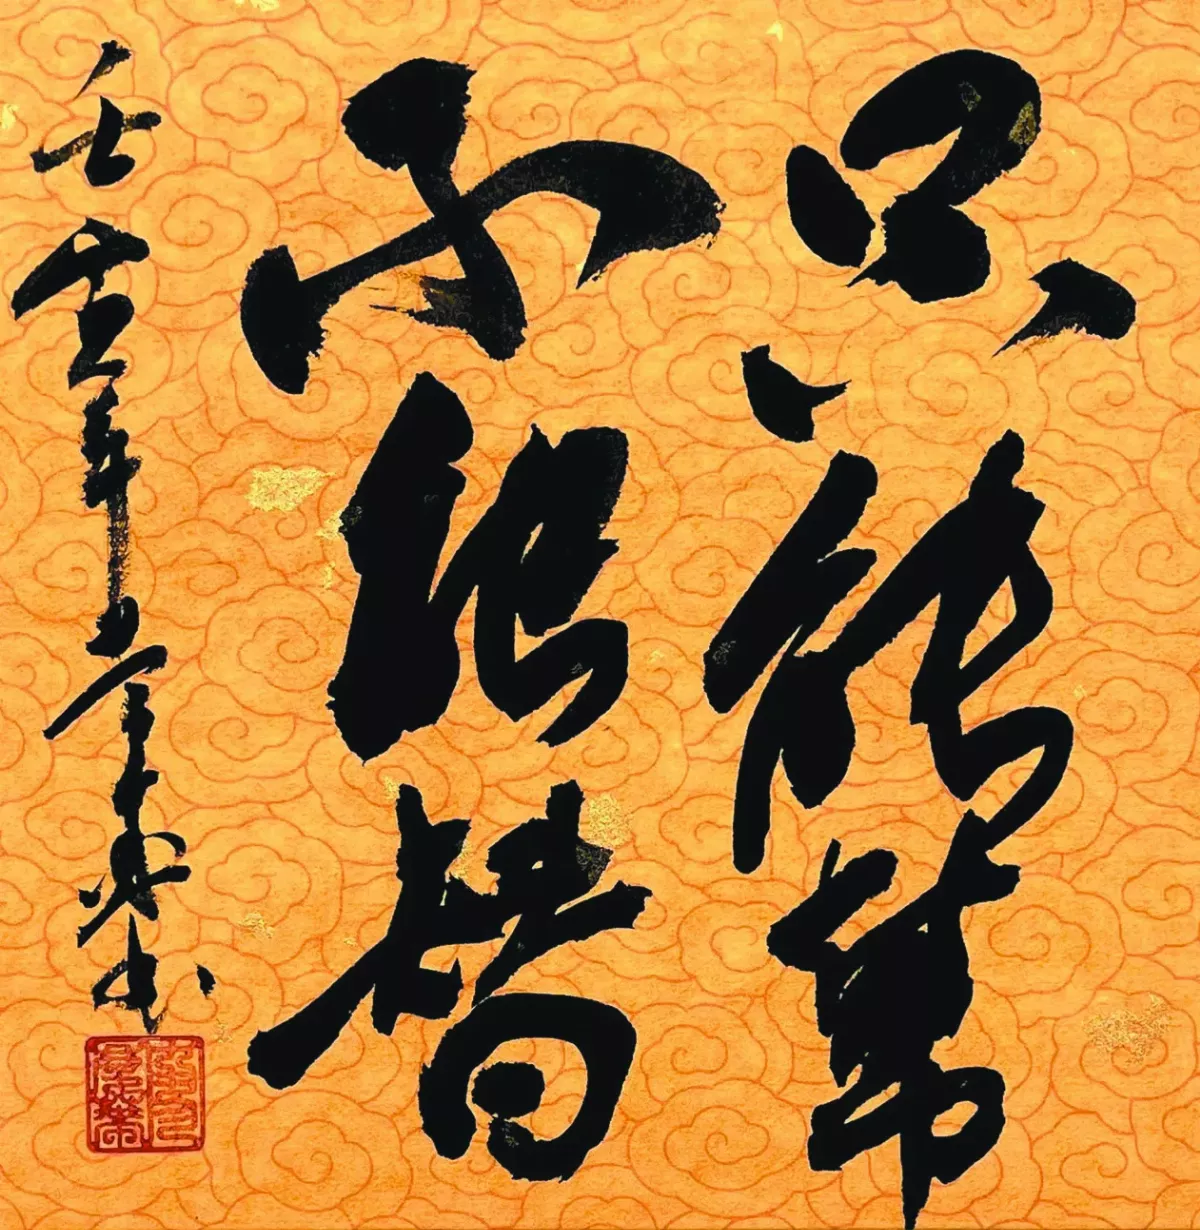 只能幫
不能替
壬寅年
书